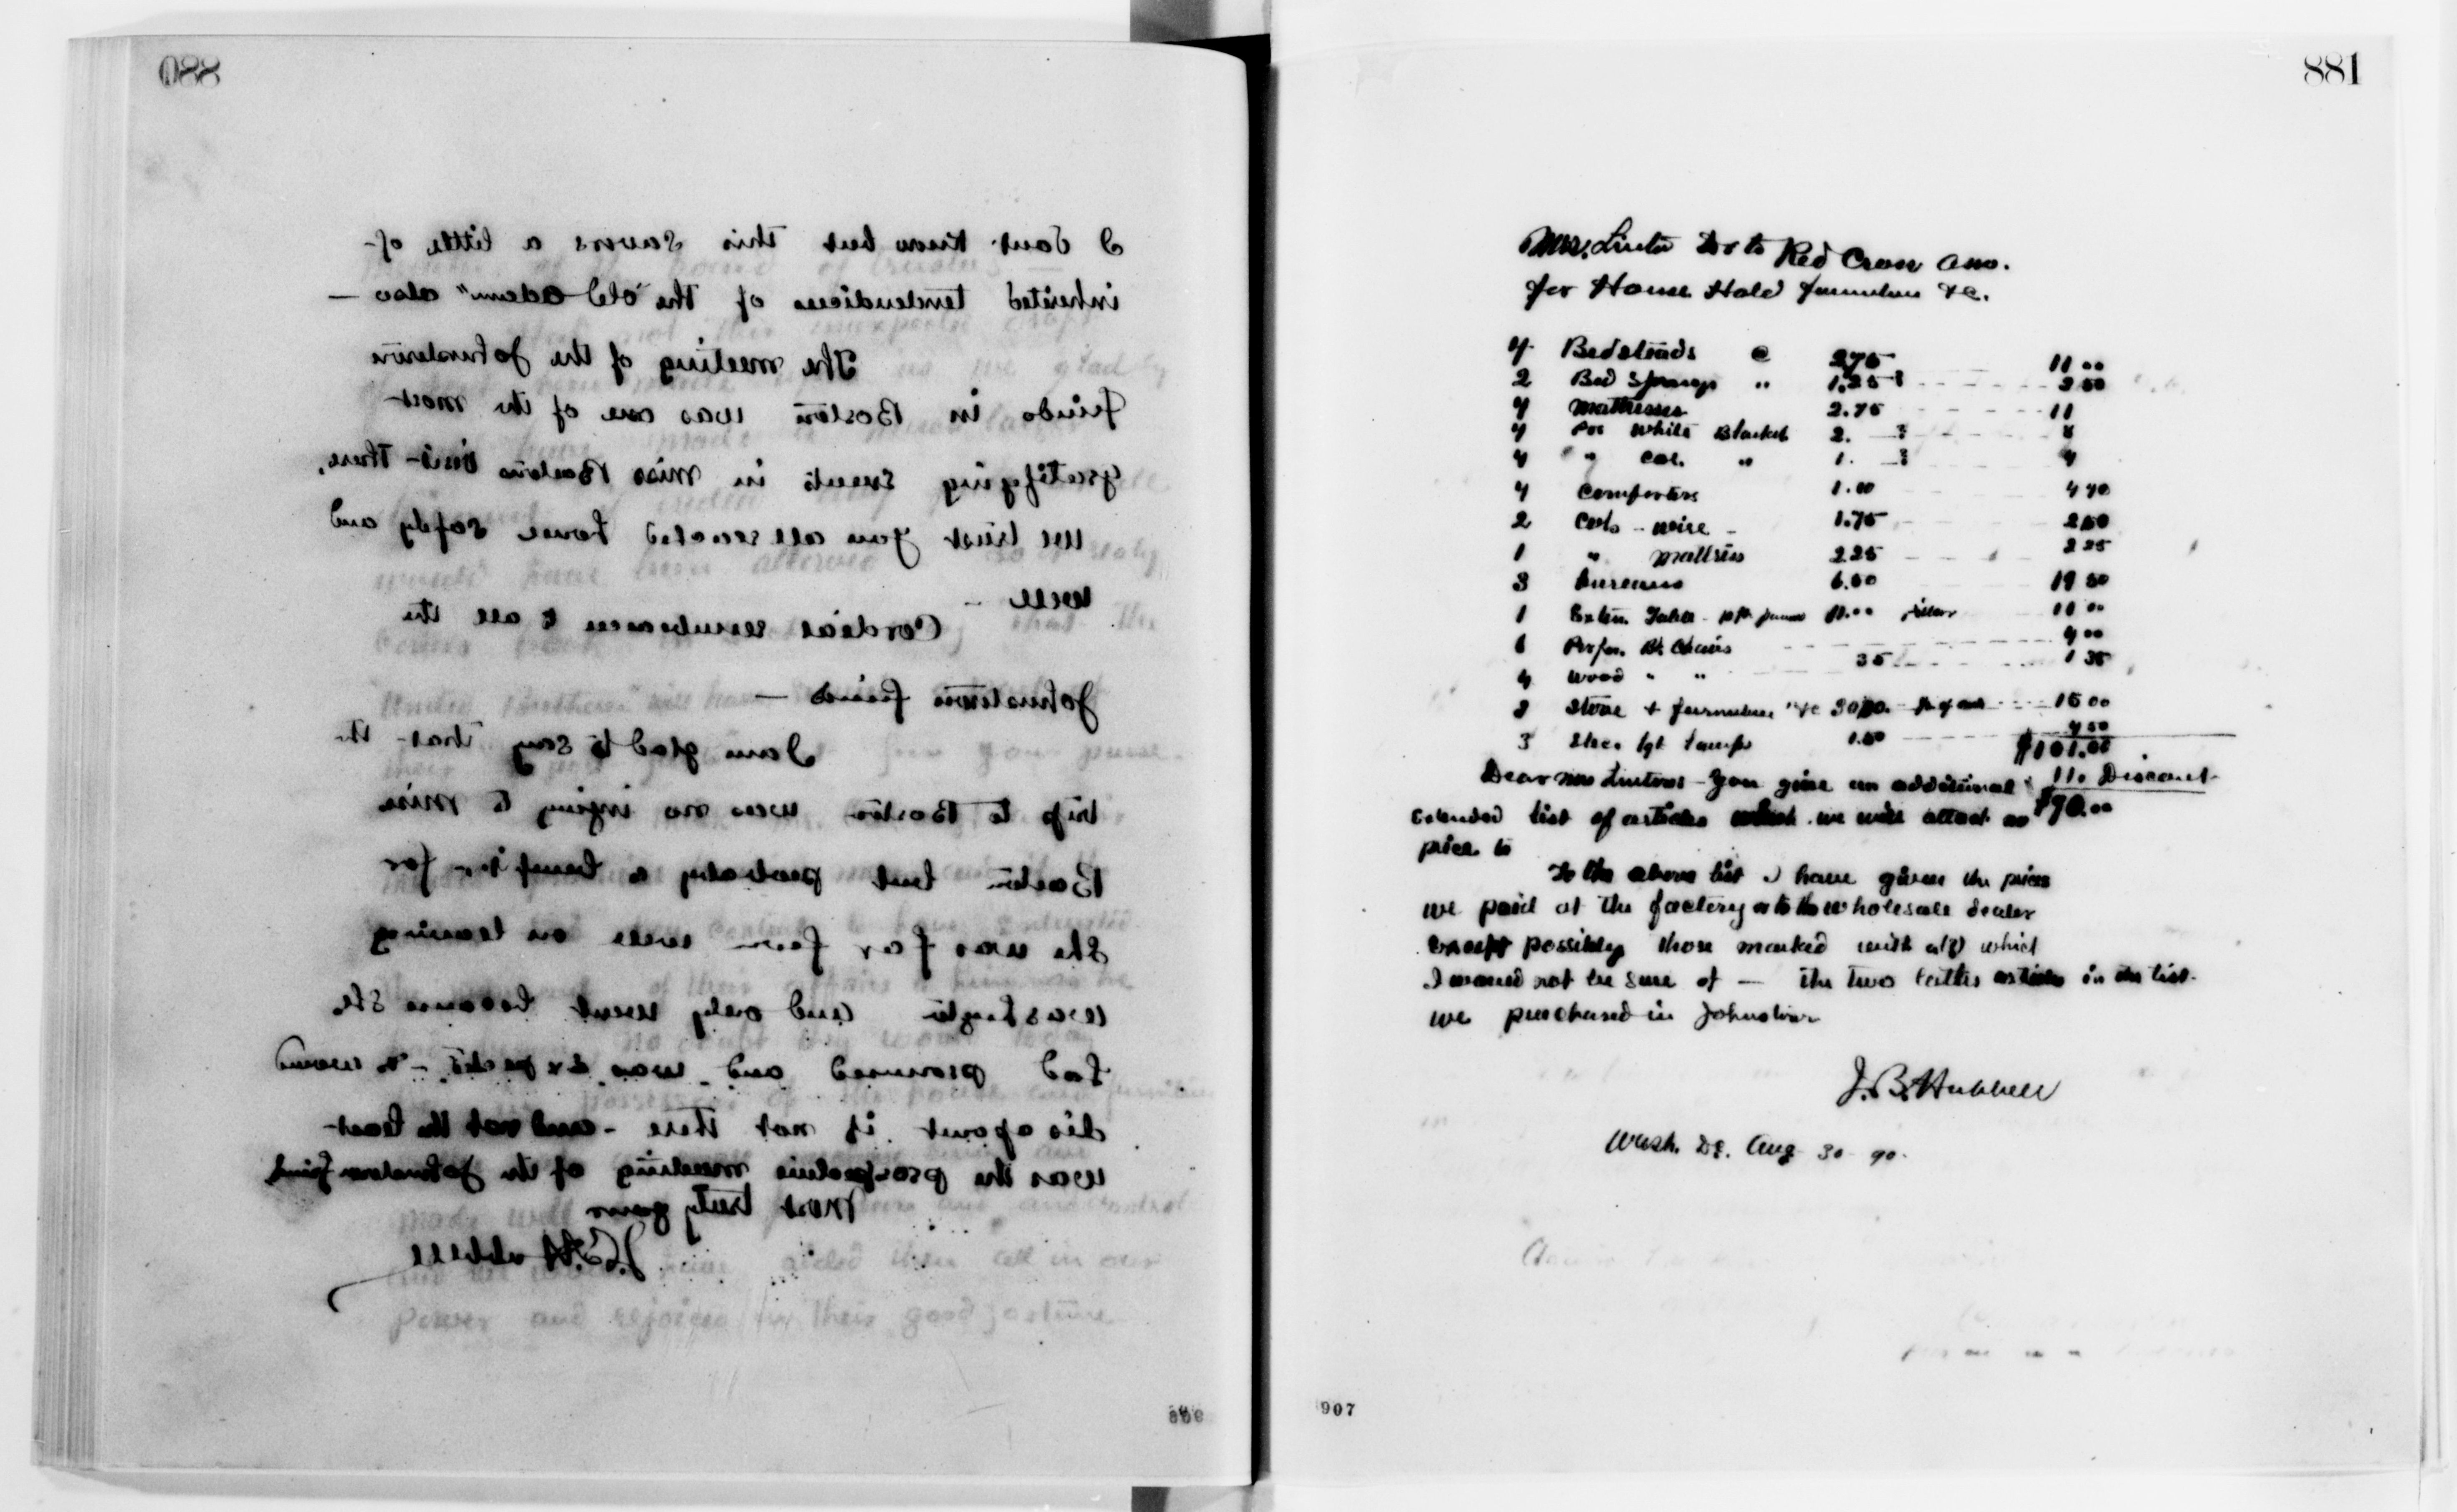 880
I dont know but this savors a little of
inherited tendendicies of the "old adam" also —
The meeting of the Johnstown
friends in Boston was one of the most
gratifying events in Miss Bartons visit there,
We trust you all reached home safely and
well —
Cordial remembrances to all the
Johnstown friends —
I am glad to say that the
trip to Boston was no injury to Miss
Barton but probably a benefit for
she was far from well on leaving
Washington and only went because she
had promised and was expected — & would
disapoint if not there — and not the least
was the prospective meeting of the Johnstown friends
Most truly yours
J.B. Hubbell
881
Mrs. Linton Dr to Red Cross Asso.
for House Hold furniture &c.
4 Bedsteads @ 2.75 11 00
2 Bed Springs " 1.25 ? 2 50
4 Mattresses 2.75 11
4 Prs White Blankets 2. ? 8
4 " Col. " 1. ? 4
4 Comforters 1.10 4 40
2 Cots - wire - 1.75
1 " Mattress 2.25 2 25
3 Bureaus 6.50 19 50
1 Exten. Table 11.00 11 00
6 Perfor. Bt. Chairs
4 Wood " " 35 1 35
Stove & furniture 15 00
3 lamps 1.50 4 50
$101.00
Dear Mrs Linton - You give an additional 11. Discount
extended list of articles which we will attach no $90.00
price to
To the above list I have given the prices
we paid at the factory or to the wholesale dealer
except possibly those marked with a(?) which
I would not be sure of — the two latter articles in the list
we purchased in Johnstown
J.B. Hubbell
Wash. D.C. Aug 30 90.
907